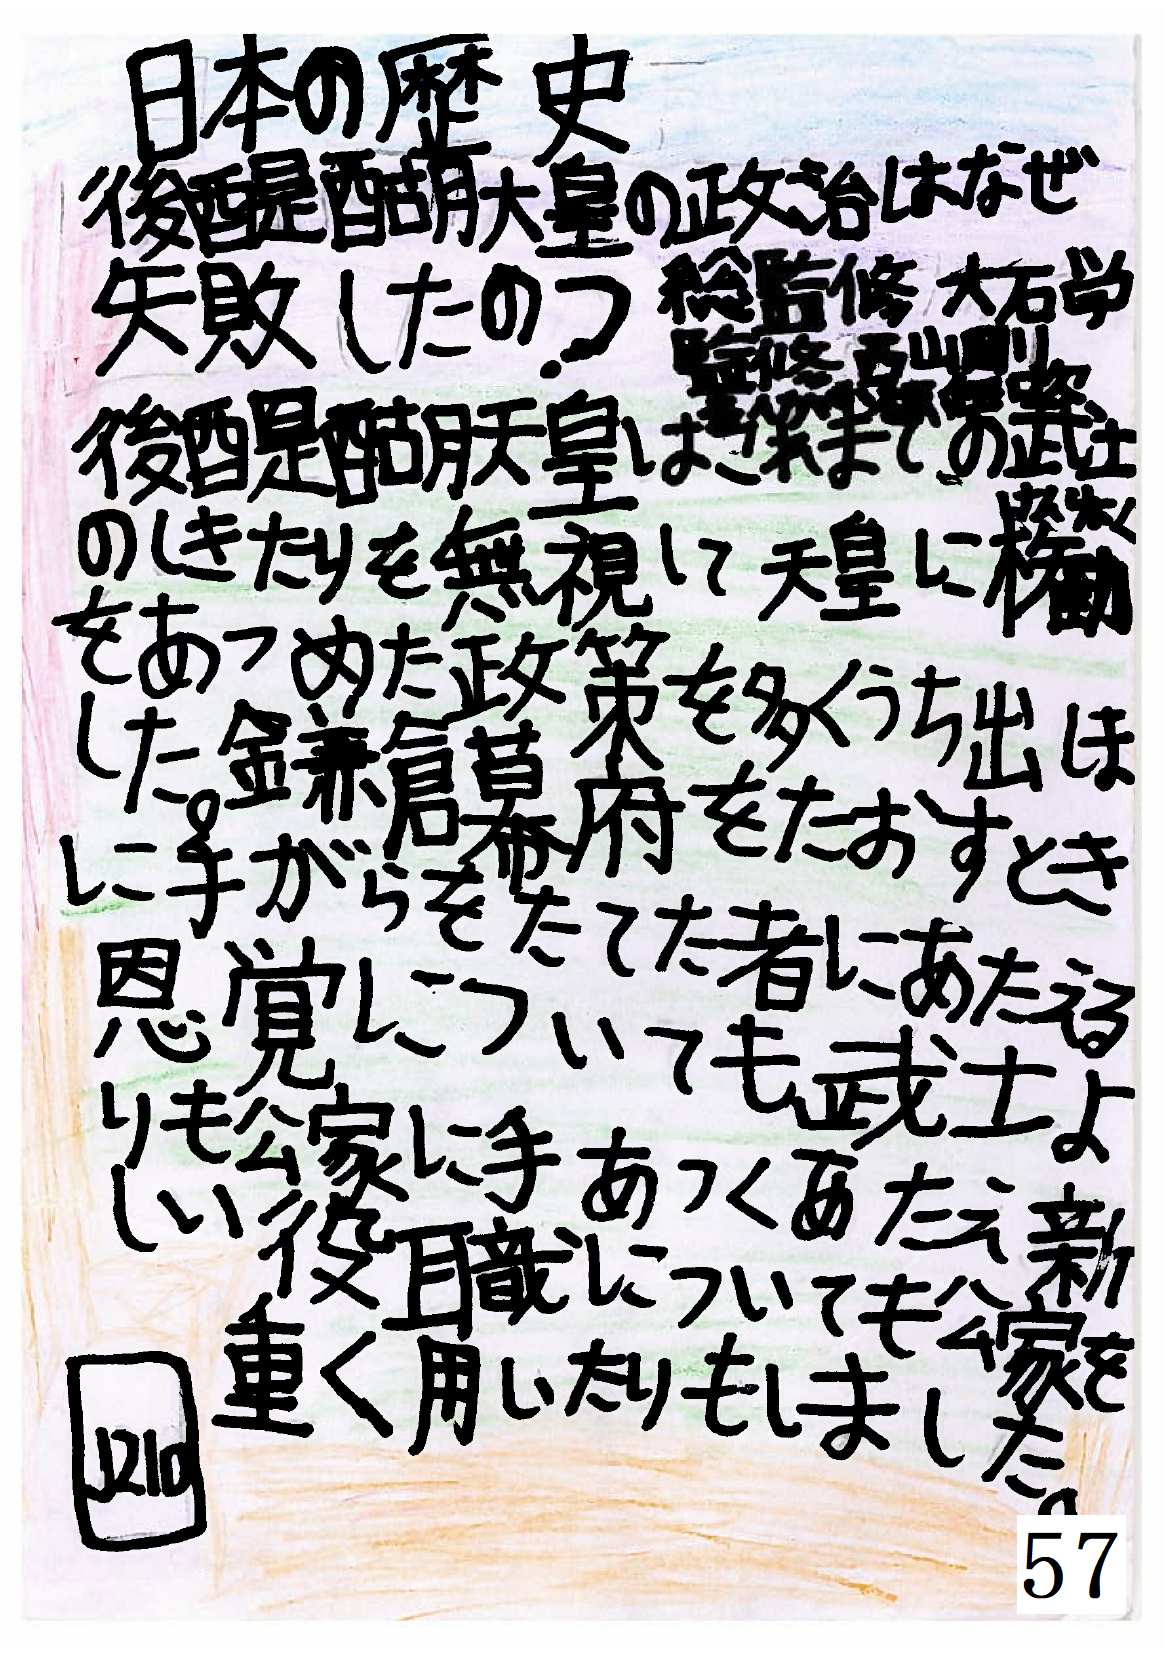 日本の歴史
後醍醐大皇の政治はなぜ
失敗したの?
総監修 大石学
監修 西山
後醍醐天皇はこれまでの武士
のしきたりを無視して天皇に権
をあつめた政策を多くうち出
した。鎌倉幕府をたおすとき
に手がらをたてた者にあたえる
恩覚についても武士よ
りも公家に手あつくあたえ新
しい役職についても公家を
重く用いたりもしました。
J210
57